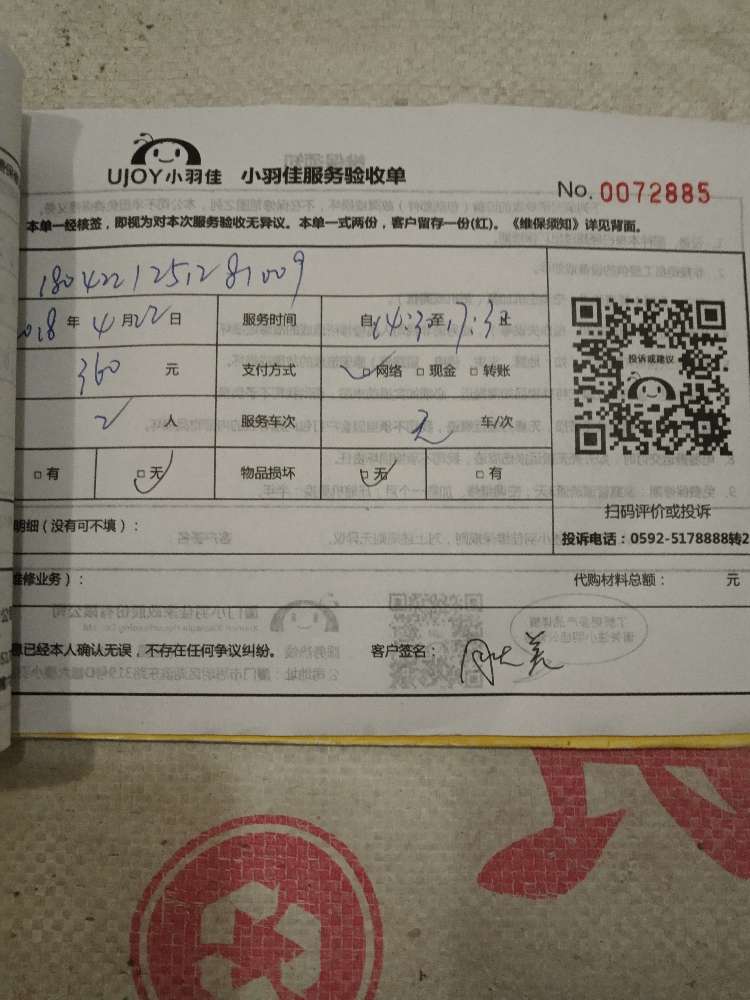 UJOY小羽佳 小羽佳服务验收单
No. 0072885
本单一经核签，即视为对本次服务验收无异议。本单一式两份，客户留存一份(红)。《维保须知》详见背面。
1804221251281009
2018 年 4 月 22 日 服务时间 自 14:30 至 17:30 止
360 元 支付方式 □网络 □现金 □转账
投诉或建议
2 人 服务车次 无 车/次
□有 □无 物品损坏 □无 □有
扫码评价或投诉
明细（没有可不填）：
投诉电话：0592-5178888转2
维修业务）： 代购材料总额： 元
息已经本人确认无误，不存在任何争议纠纷。 客户签名：